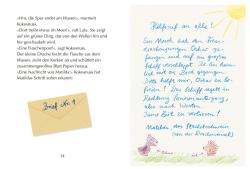 «Hm, die Spur endet am Wasser», murmelt
Kokosnuss.
«Dort treibt etwas im Meer!», ruft Lulu. Sie zeigt
auf ein grünes Ding, das von den Wellen hin und
her geschaukelt wird.
«Eine Flaschenpost!», sagt Kokosnuss.
Blitzschnell fischt er die Flasche aus dem
Wasser, zieht den Korken ab und schüttelt ein
zusammengerolltes Blatt Papier heraus.
«Eine Nachricht von Matilda!» Kokosnuss hat
Matildas Schrift sofort erkannt.
Brief Nr. 1
14
Hilferuf an alle!
Ein Mensch hat den Fress-
drachenjungen Oskar ge-
fangen und auf ein großes
Schiff verschleppt. Ich bin
Oskar heimlich gefolgt.
Bitte helft mir, Oskar zu be-
freien! Das Schiff segelt in
Richtung Sonnenuntergang,
also nach Westen.
Seid Ihr zu verlieren.
Matilda, das Stachelschwein
(von der Dracheninsel)